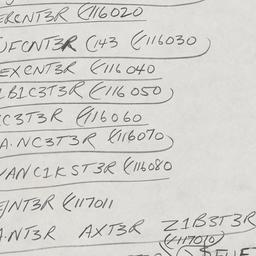 ERCNT3R (116020
JFCNT3R (143 (116030)
EXCNT3R (116040
1B1C3T3R (116050)
CC3T3R (116060
A.NC3T3R (116070)
VANC1KST3R (116080
EJNT3R (117011
A.NT3R AXT3R Z1B3T3R
(117010)